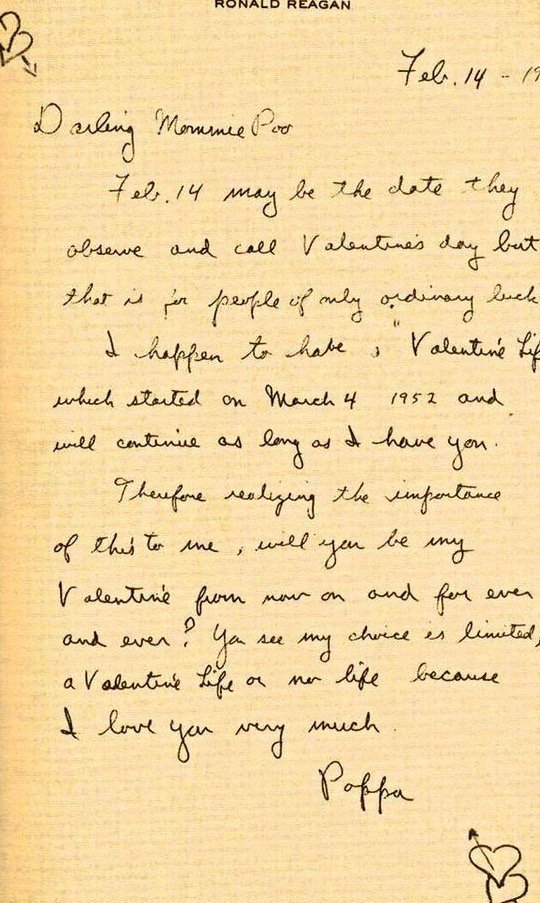 RONALD REAGAN
Feb. 14 - 19
Darling Mommie Poo
Feb. 14 may be the date they
observe and call Valentine's day but
that is for people of only ordinary luck
I happen to have a "Valentine Life
which started on March 4 1952 and
will continue as long as I have you.
Therefore realizing the importance
of this to me, will you be my
Valentine from now on and for ever
and ever? You see my choice is limited,
a Valentine Life or no life because
I love you very much.
Poppa